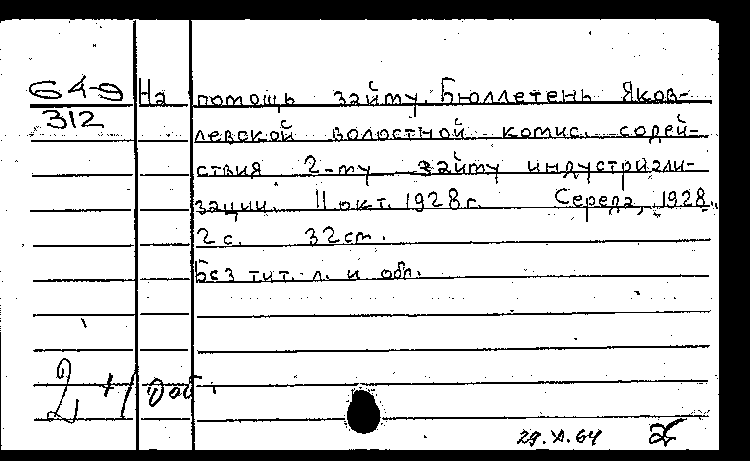 64-9 На помощь займу. Бюллетень Яков-
312
левской волостной комис. содей-
ствия 2-му займу индустриали-
зации. 11 окт. 1928 г. Середа, 1928.
2 с. 32 см.
Без тит. л. и обл.
29.X.64